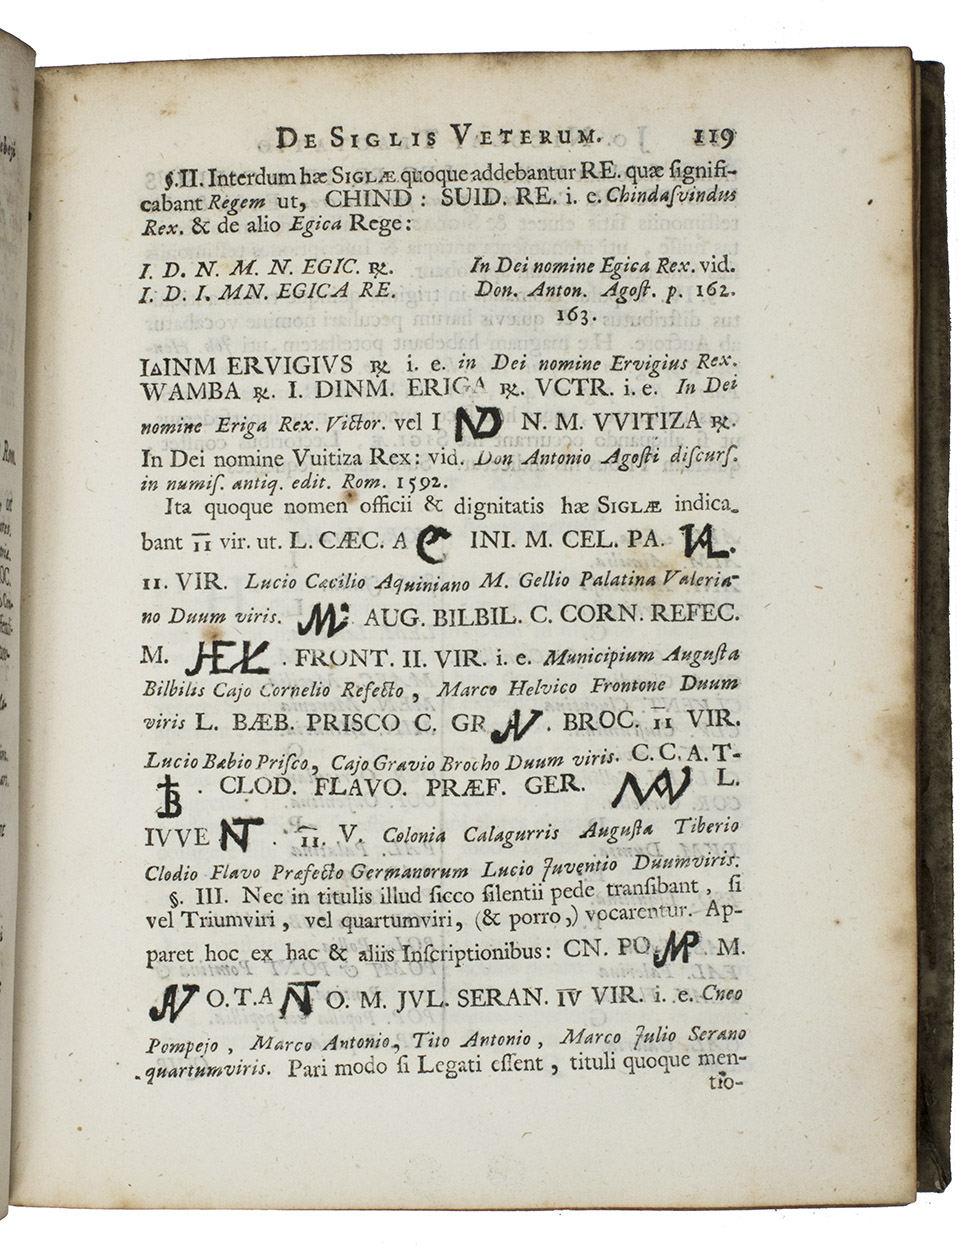 DE SIGLIS VETERUM. 119
§.II. Interdum hæ SIGLÆ quoque addebantur RE. quæ signifi-
cabant Regem ut, CHIND : SUID. RE. i. e. Chindasvindus
Rex. & de alio Egica Rege:
I. D. N. M. N. EGIC. ℞. In Dei nomine Egica Rex. vid.
I. D. I. MN. EGICA RE. Don. Anton. Agost. p. 162.
163.
I▵INM ERVIGIVS ℞ i. e. in Dei nomine Ervigius Rex.
WAMBA ℞. I. DINM. ERIGA ℞. VCTR. i. e. In Dei
nomine Eriga Rex. Victor. vel I ND N. M. VVITIZA ℞.
In Dei nomine Vuitiza Rex: vid. Don Antonio Agosti discurs.
in numis. antiq. edit. Rom. 1592.
Ita quoque nomen officii & dignitatis hæ SIGLÆ indica-
bant II vir. ut. L. CÆC. A INI. M. CEL. PA. VAL.
II. VIR. Lucio Cæcilio Aquiniano M. Gellio Palatina Valeria-
no Duum viris. MV: AUG. BILBIL. C. CORN. REFEC.
M. HELV . FRONT. II. VIR. i. e. Municipium Augusta
Bilbilis Cajo Cornelio Refecto, Marco Helvico Frontone Duum
viris L. BÆB. PRISCO C. GR AV . BROC. II VIR.
Lucio Bæbio Prisco, Cajo Gravio Brocho Duum viris. C. C. A. T-
IB . CLOD. FLAVO. PRÆF. GER. MAN L.
IVVE NT . II. V. Colonia Calagurris Augusta Tiberio
Clodio Flavo Præfecto Germanorum Lucio Juventio Duumviris.
§. III. Nec in titulis illud sicco silentii pede transibant, si
vel Triumviri, vel quartumviri, (& porro,) vocarentur. Ap-
paret hoc ex hac & aliis Inscriptionibus: CN. PO MP . M.
AN O. T. A NT O. M. JVL. SERAN. IV VIR. i. e. Cneo
Pompejo, Marco Antonio, Tito Antonio, Marco Julio Serano
quartumviris. Pari modo si Legati essent, tituli quoque men-
tio-